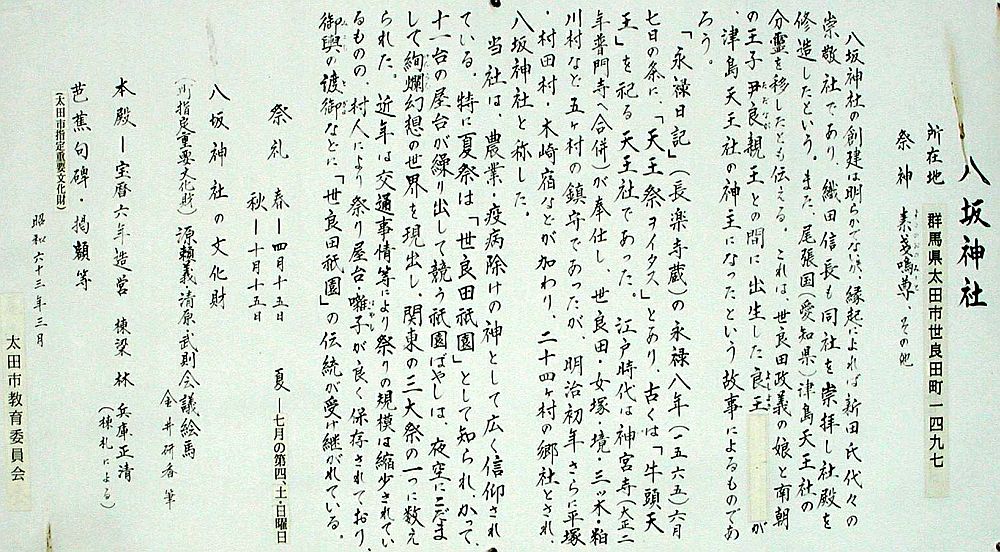 八坂神社
所在地 群馬県太田市世良田町一四九七
祭神 素戔嗚尊、その他
八坂神社の創建は明らかでないが、縁起によれば新田氏代々の
崇敬社であり、織田信長も同社を崇拝し社殿を
修造したという。また、尾張国(愛知県)津島天王社の
分霊を移したとも伝える。これは、世良田政義の娘と南朝
の王子尹良親王との間に出生した良王 が
、津島天王社の神主になったという故事によるものであ
ろう。
「永禄日記」(長楽寺蔵)の永禄八年(一五六五)六月
七日の条に、「天王祭ヲイタス」とあり、古くは「牛頭天
王」を祀る天王社であった。江戸時代は神宮寺(大正二
年普門寺へ合併)が奉仕し、世良田・女塚・境・三ツ木・粕
川村など五ヶ村の鎮守であったが、明治初年さらに平塚
・村田村・木崎宿などが加わり、二十四ヶ村の郷社とされ、
八坂神社と称した。
当社は、農業・疫病除けの神として広く信仰され
ている。特に夏祭は「世良田祇園」として知られ、かって、
十一台の屋台が繰り出して競う祇園ばやしは、夜空にこだま
して絢爛幻想の世界を現出し、関東の三大祭の一つに数え
られた。近年は交通事情等により祭りの規模は縮少されてい
るものの、村人により祭り屋台・囃子が良く保存されており、
御輿の渡御などに「世良田祇園」の伝統が受け継がれている。
祭礼 春―四月十五日 夏―七月の第四、土・日曜日
秋―十月十五日
八坂神社の文化財
(市指定重要文化財)源頼義清原武則会議絵馬
金井研香筆
本殿―宝暦六年造営 棟梁 林 兵庫正清
(棟札による)
芭蕉句碑・掲額等
(太田市指定重要文化財)
昭和六十三年三月
太田市教育委員会